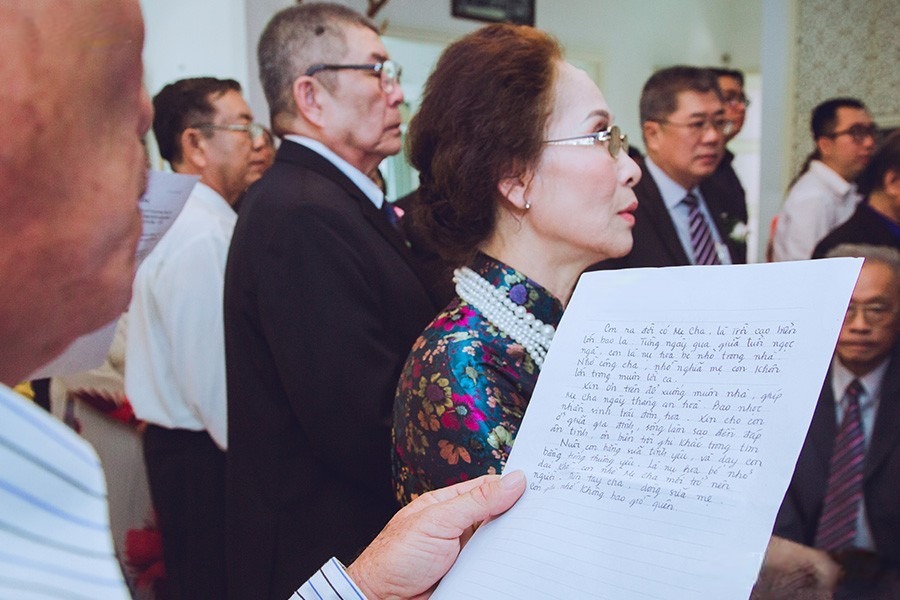 Con ra đời có Mẹ Cha, là trời cao biển
lớn bao la. Từng ngày qua, giữa tay ngọc
ngà, con là nụ hoa bé nhỏ trong nhà
Nhớ công cha, nhớ nghĩa mẹ con khôn
lớn trong muôn lời ca.
Xin ơn trên đổ xuống muôn nhà, giúp
Mẹ Cha ngày tháng an hoà. Bao nhọc
nhằn sinh trái đơm hoa. Xin cho con
ở quá gia đình, sống làm sao đền đáp
ân tình, ơn biển trời ghi khắc trong tim
Nuôi con bằng sữa tình yêu, và dạy con
bằng tiếng thương yêu. Là nụ hoa bé nhỏ
dại khờ, con nhờ Mẹ Cha mới trở nên
người. tay cha, dòng sữa mẹ
Con nhớ không bao giờ quên